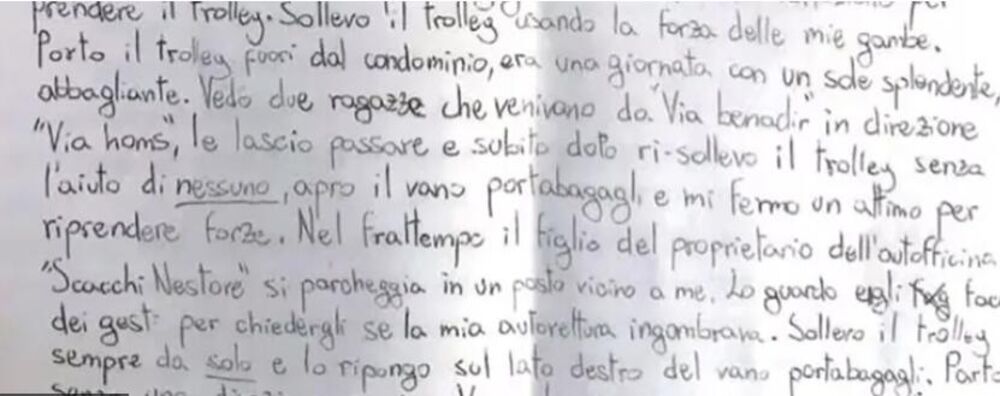 prendere il trolley. Sollevo il trolley usando la forza delle mie gambe.
Porto il trolley fuori dal condominio, era una giornata con un sole splendente,
abbagliante. Vedo due ragazze che venivano da "Via benadir" in direzione
"Via homs", le lascio passare e subito dopo ri-sollevo il trolley senza
l'aiuto di nessuno, apro il vano portabagagli e mi fermo un attimo per
riprendere forze. Nel frattempo il figlio del proprietario dell'autofficina
"Scacchi Nestore" si parcheggia in un posto vicino a me. Lo guardo e gli fac
dei gesti per chiedergli se la mia autovettura ingombrava. Sollevo il trolley
sempre da solo e lo ripongo sul lato destro del vano portabagagli. Part